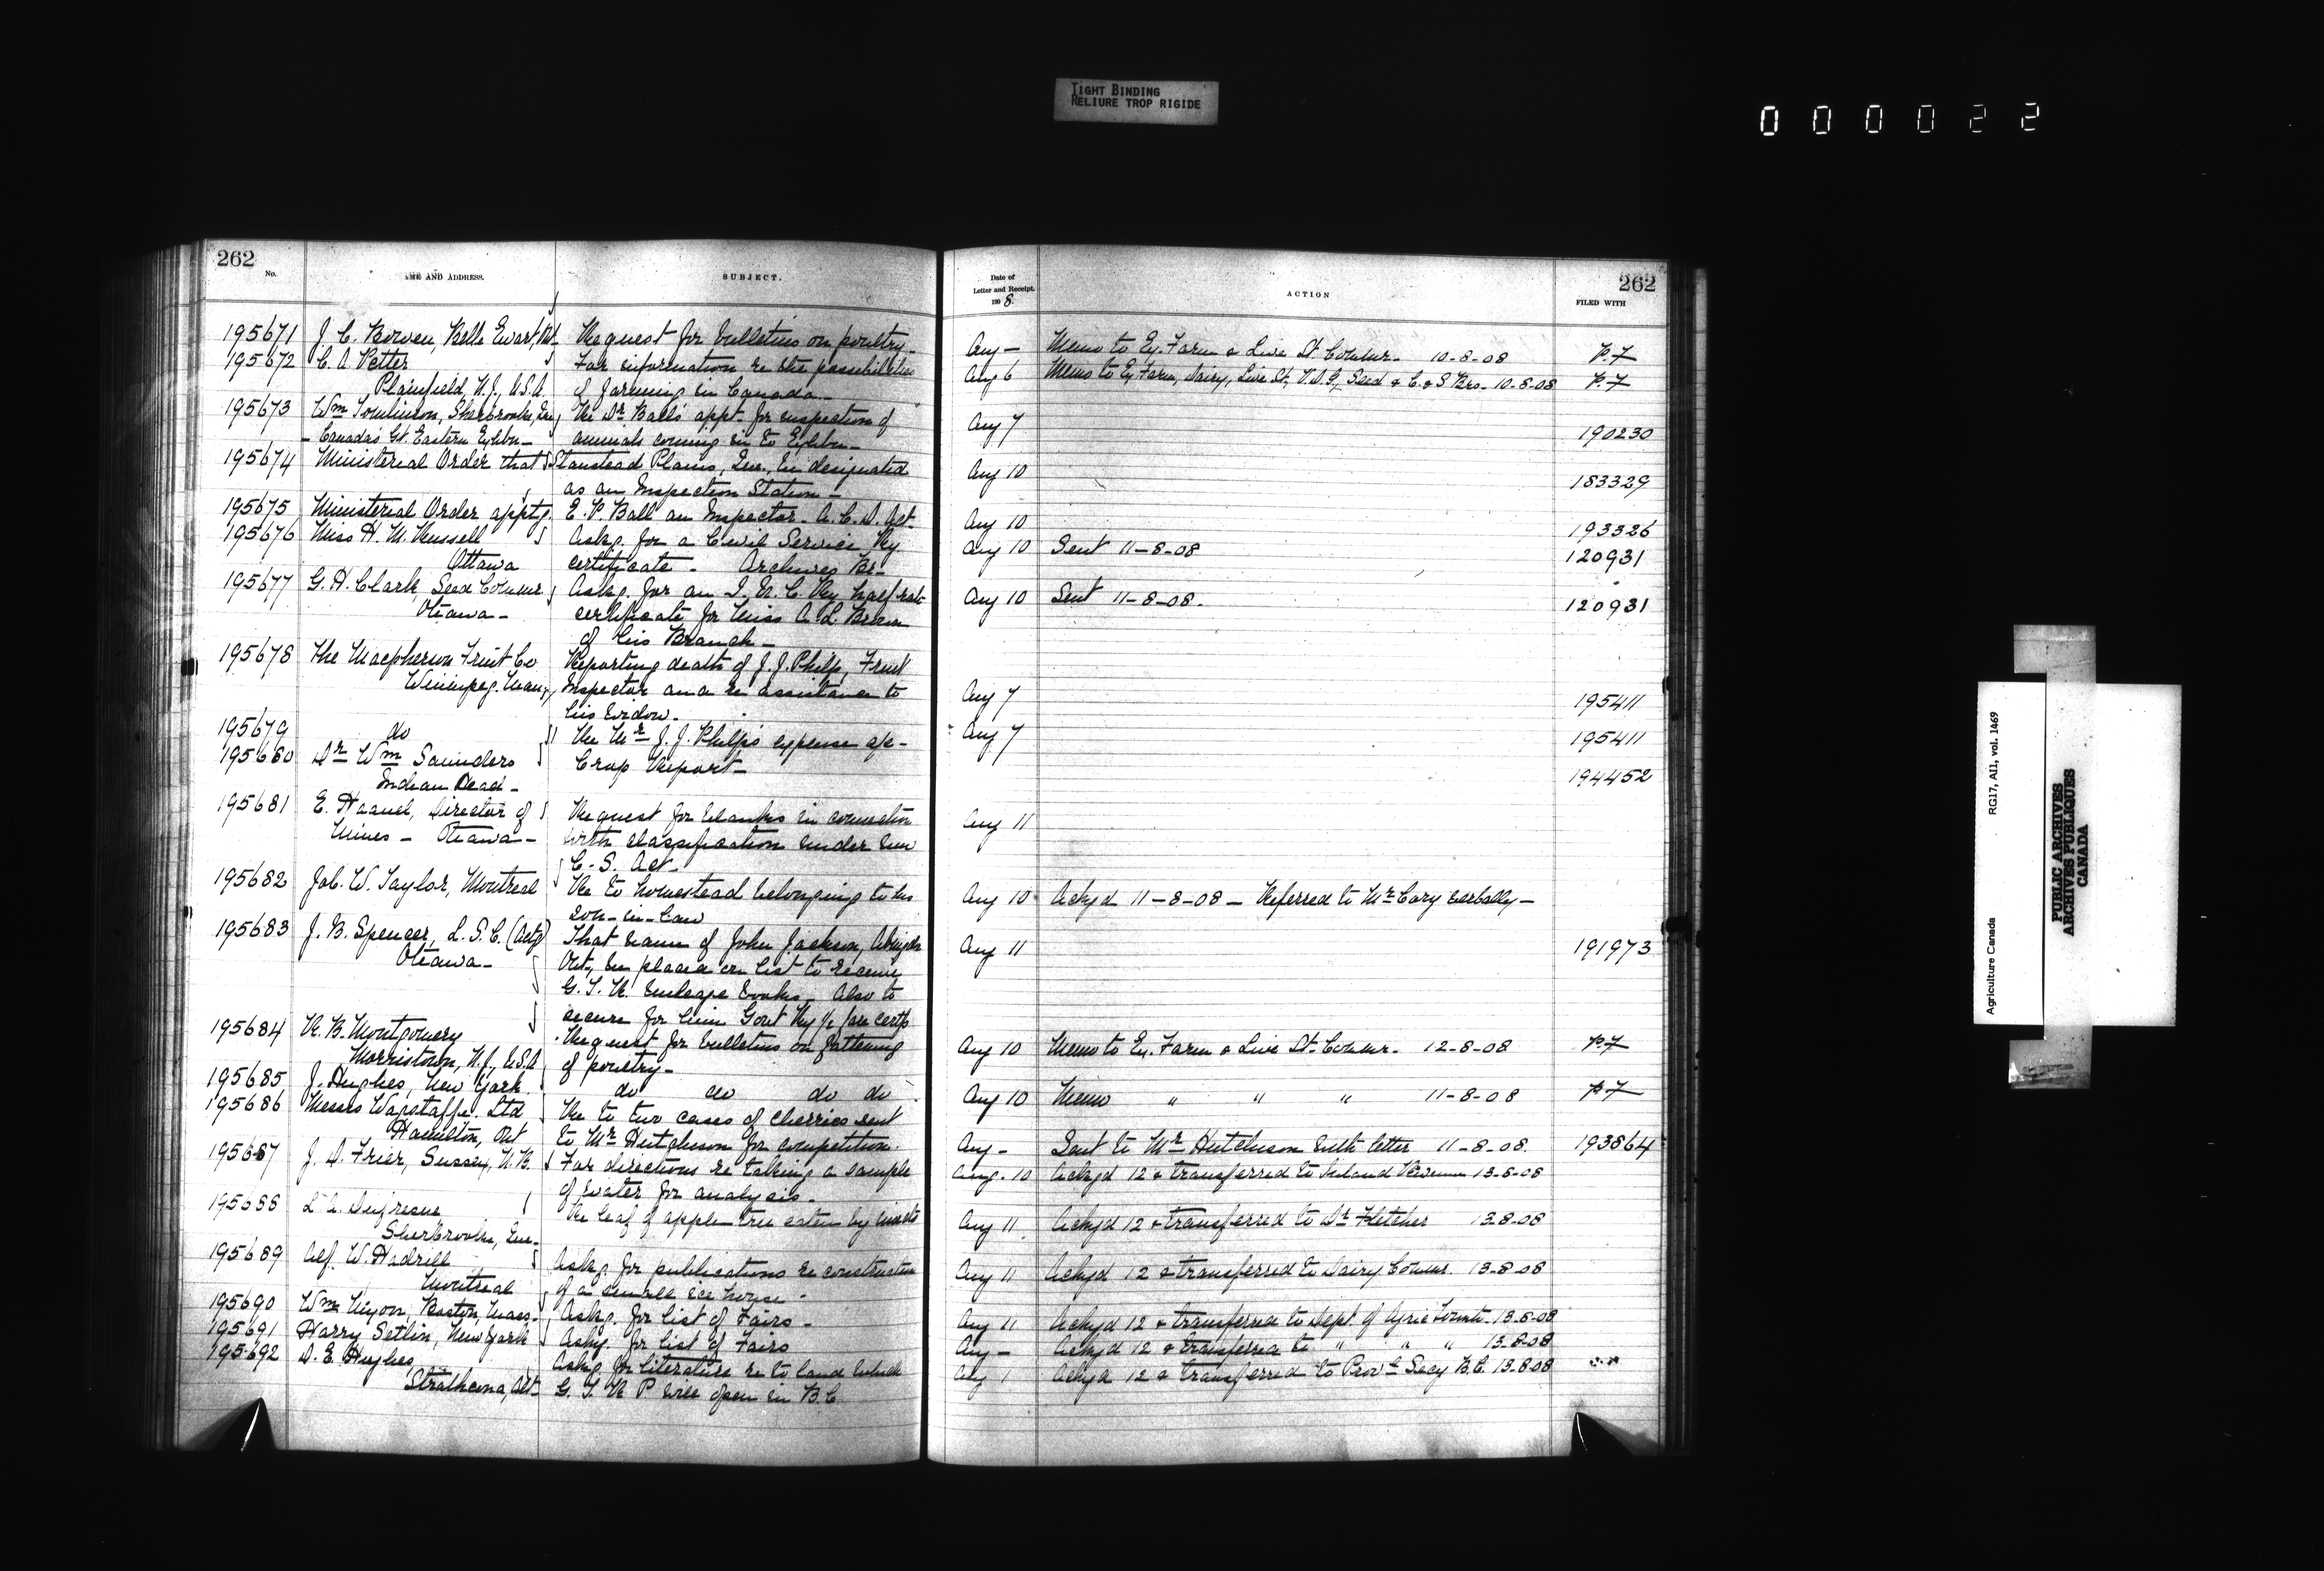 TIGHT BINDING
RELIURE TROP RIGIDE
000022
262
No.
ME AND ADDRESS.
SUBJECT.
195671 J. C. Bowen, Belle Ewart, Ont Request for bulletins on poultry-
195672 C. A. Petter For information re the possibilities
Plainfield, N.J., U.S.A. of farming in Canada-
195673 Wm Tomlinson, Sherbrooke, Que Re Dr Ball's appt. for inspection of
- Canada's Gt. Eastern Exhbn- animals coming in to Exhbn-
195674 Ministerial Order that Stanstead Plains, Que., be designated
as an Inspection Station-
195675 Ministerial Order apptg. E. P. Ball an Inspector. A. C. D. Act.
195676 Miss H. M. Russell Askg. for a Civil Service Ry
Ottawa certificate - Archives Br-
195677 G. H. Clark, Seed Commr Askg. for an I. R. C. Ry half rate
Ottawa- certificate for Miss A. L. Brown
of his Branch-
195678 The Macpherson Fruit Co Reporting death of J. J. Philp, Fruit
Winnipeg. Man. Inspector and re assistance to
his widow-
195679 do Re Mr J. J. Philp's expense a/c-
195680 Dr Wm Saunders Crop Report-
Indian Head-
195681 E. Haanel, Director of Request for blanks in connection
Mines - Ottawa- with classification under new
C. S. Act-
195682 Job. W. Taylor, Montreal Re to homestead belonging to his
son-in-law
195683 J. B. Spencer, L. S. C. (Actg) That name of John Jackson, Abingdon
Ottawa- Ont., be placed on list to receive
G. T. R. mileage books. Also to
secure for him Govt Ry ½ fare certfs
195684 R. B. Montgomery Request for bulletins on fattening
Morristown, N.J., U.S.A of poultry-
195685 J. Hughes, New York do do do do
195686 Messrs Wagstaffe. Ltd Re to two cases of cherries sent
Hamilton, Ont to Mr Hutchison for competition.
195687 J. D. Frier, Sussex, N.B. For directions re taking a sample
of water for analysis.
195688 L. A. Dufresne Re leaf of apple tree eaten by insects
Sherbrooke, Que.
195689 Alf. W. Hadrill Askg. for publications re construction
Montreal of a small ice house-
195690 Wm Nixon, Boston, Mass. Askg. for list of Fairs-
195691 Harry Setlin, New York Askg. for list of Fairs
195692 D. E. Hughes, Askg. for literature re to land which
Strathcona, Alt- G. T. R P will open in B.C.
Date of
Letter and Receipt.
190 8.
ACTION
262
FILED WITH
Aug - Memo to Ex. Farm & Live St. Commr. 10-8-08 p.7
Aug 6 Memo to Ex Farm, Dairy, Live St., V.D.G., Seed & C. & S Brs- 10-8-08 p.7
Aug 7 190230
Aug 10 183329
Aug 10 193326
Aug 10 Sent 11-8-08 120931
Aug 10 Sent 11-8-08. 120931
Aug 7 195411
Aug 7 195411
194452
Aug 11
Aug 10 Ackgd 11-8-08 - Referred to Mr Cory verbally-
Aug 11 191973
Aug 10 Memo to Ex. Farm & Live St. Commr. 12-8-08 p.7
Aug 10 Memo " " " 11-8-08 p.7
Aug - Sent to Mr Hutchison with letter 11-8-08. 193864
Aug. 10 Ackgd 12 & transferred to Inland Revenue 13-8-08
Aug 11 Ackgd 12 & transferred to Dr Fletcher 13-8-08
Aug 11 Ackgd 12 & transferred to Dairy Commr. 13-8-08
Aug 11 Ackgd 12 & transferred to Dept of Agric Toronto- 13-8-08
Aug - Ackgd 12 & transferred to " " " 13-8-08
Aug 1 Ackgd 12 & transferred to Provl Secy B.C. 13-8-08
Agriculture Canada RG17, AI1, vol. 1469
PUBLIC ARCHIVES
ARCHIVES PUBLIQUES
CANADA